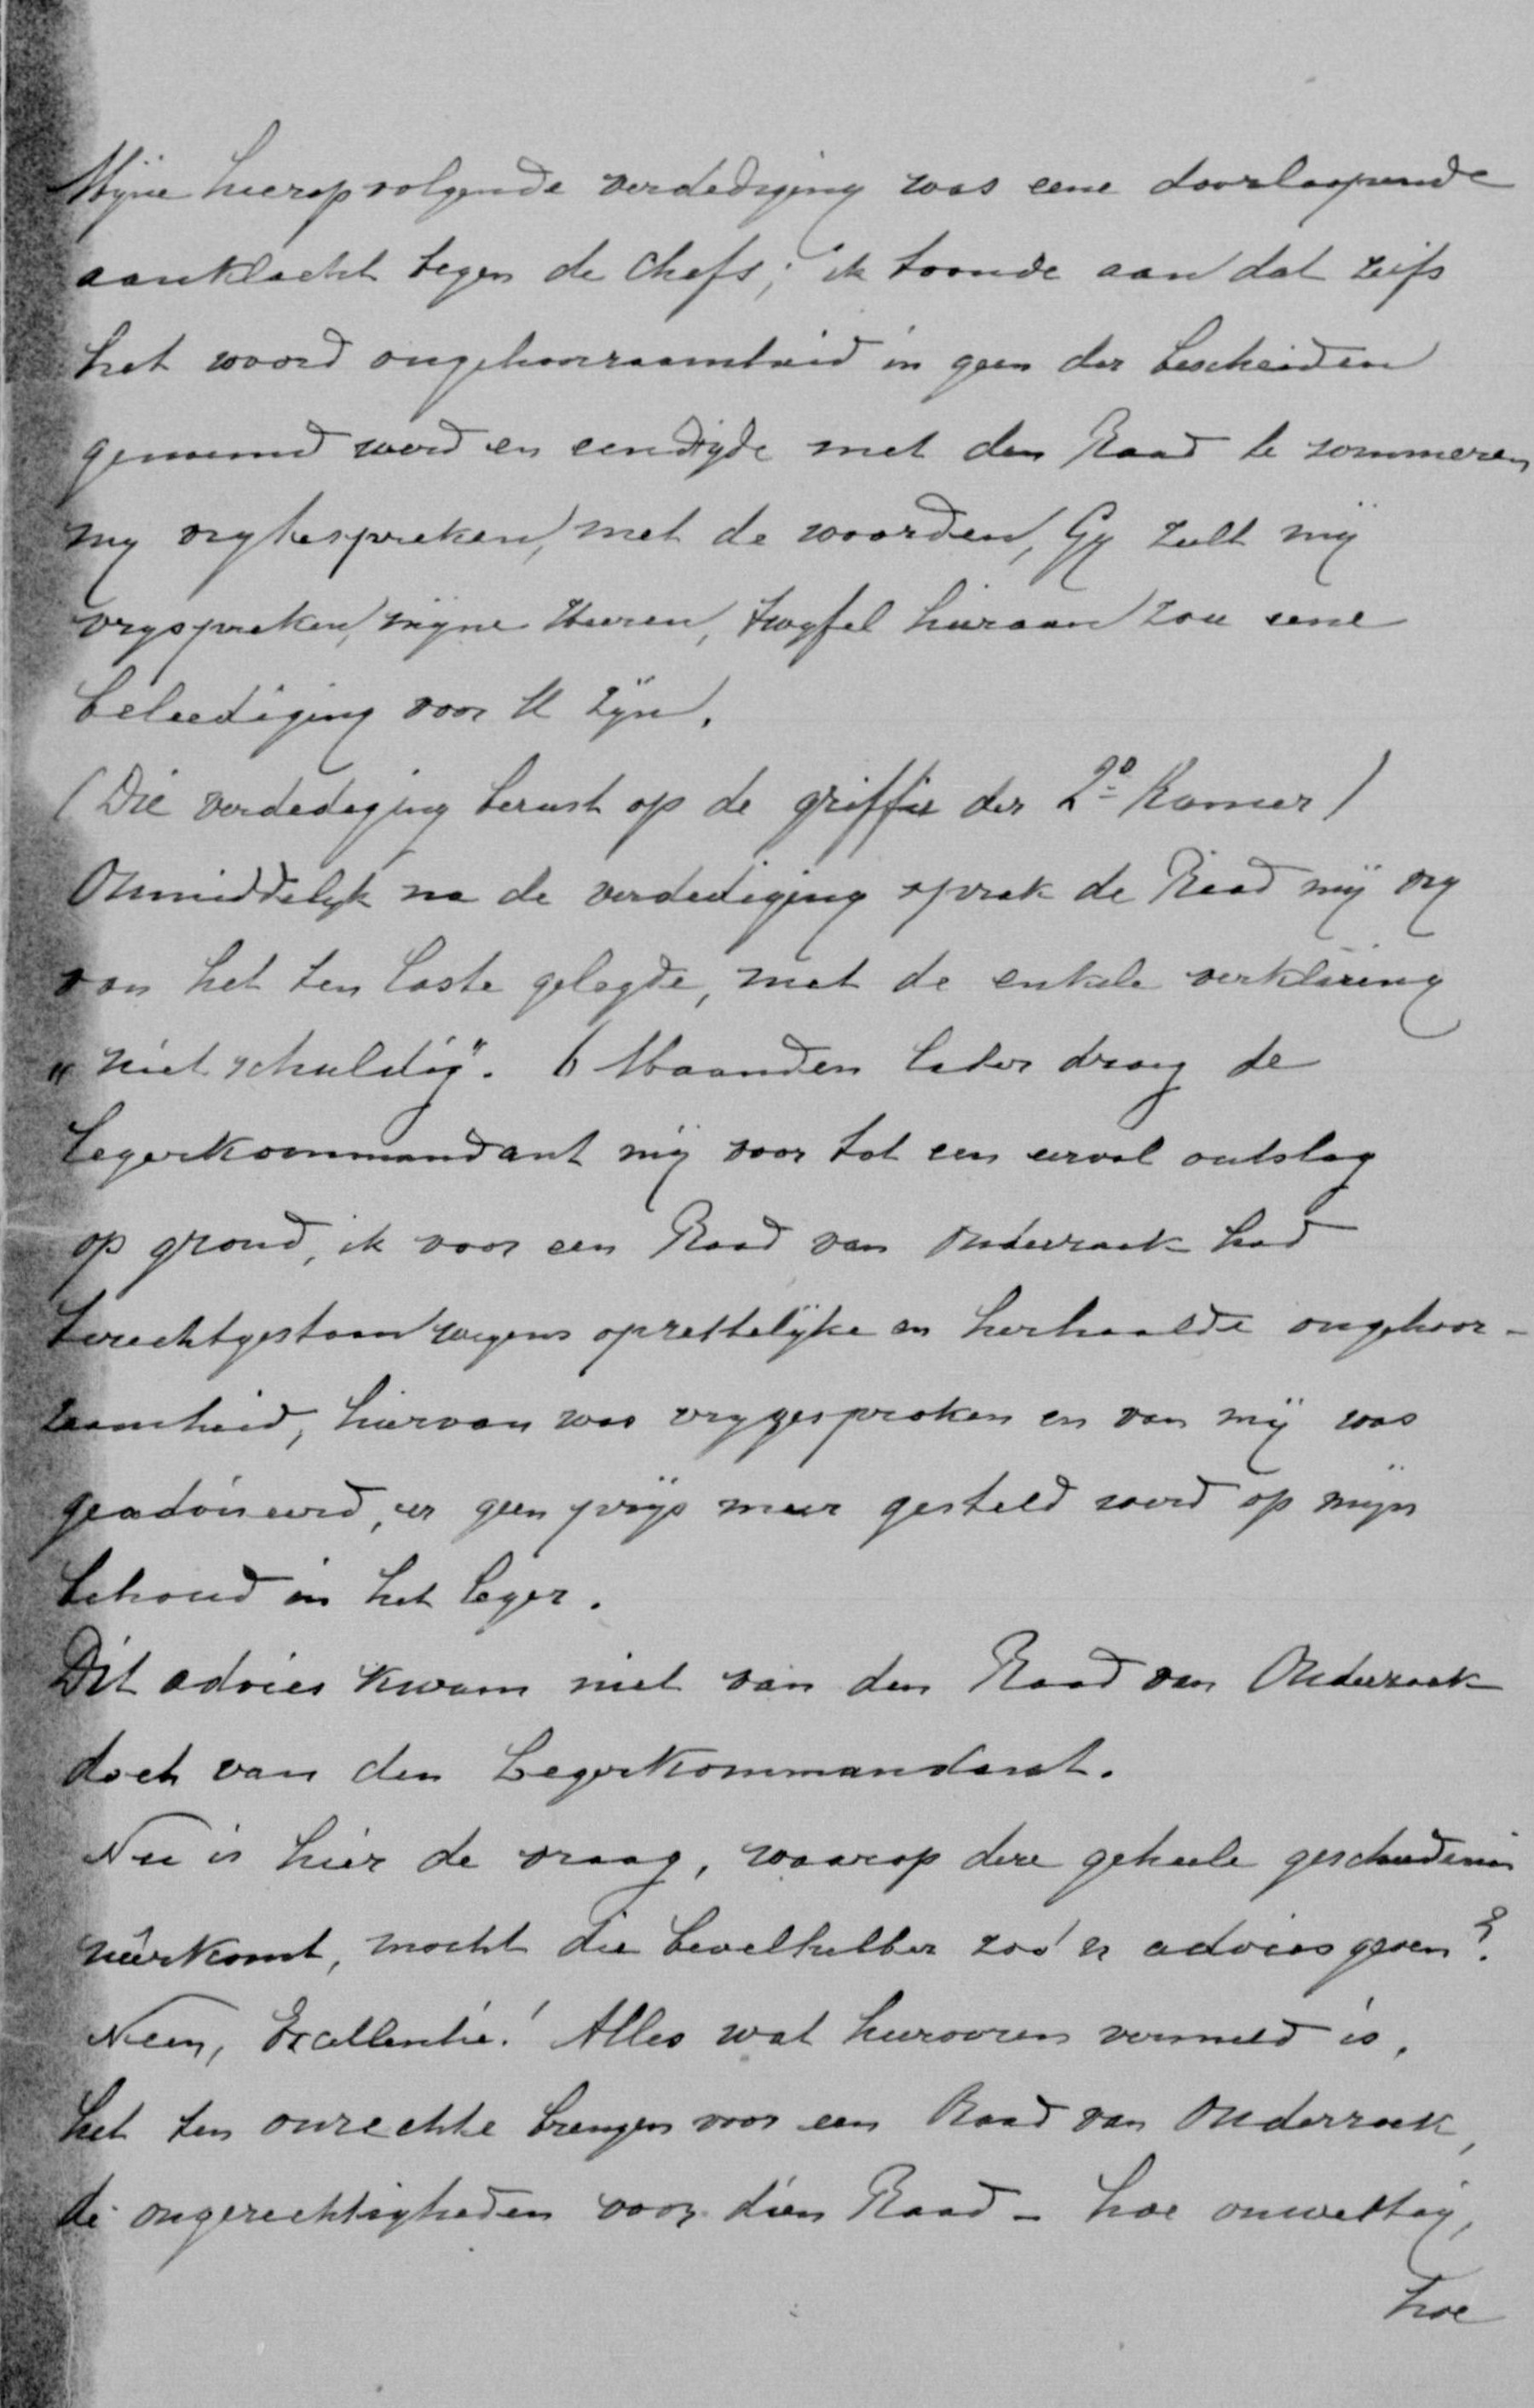 Mijne hieropvolgende verdediging was eene doorloopende
aanklacht tegen de Chefs; ik toonde aan dat zelfs
het woord ongehoorzaamheid in geen der bescheiden
genoemd werd en eindigde met den Raad te sommeren
mij vrijtespreken, met de woorden, Gij zult mij
vrijspreken, mijne Heeren, twijfel hieraan zou eene
beleediging voor U zijn.
(Die verdediging berust op de griffie der 2e Kamer)
Onmiddelijk na de verdediging sprak de Raad mij vrij
van het ten laste gelegde, met de enkele verklaring
"niet schuldig". 6 Maanden later droeg de
Legerkommandant mij voor tot een eervol ontslag
op grond, ik voor een Raad van Onderzoek had
terechtgestaan wegens opzettelijke en herhaalde ongehoor-
zaamheid, hiervan was vrijgesproken en van mij was
geadviseerd, er geen prijs meer gesteld werd op mijn
behoud in het leger.
Dit advies kwam niet van den Raad van Onderzoek
doch van den Legerkommandant.
Nu is hier de vraag, waarop deze geheele geschiedenis
neêrkomt, mocht die bevelhebber zoo'n advies geven?
Neen, Excellentie! Alles wat hierboven vermeld is,
het ten onrechte brengen voor een Raad van Onderzoek,
de ongerechtigheden voor dien Raad - hoe onwettig,
hoe